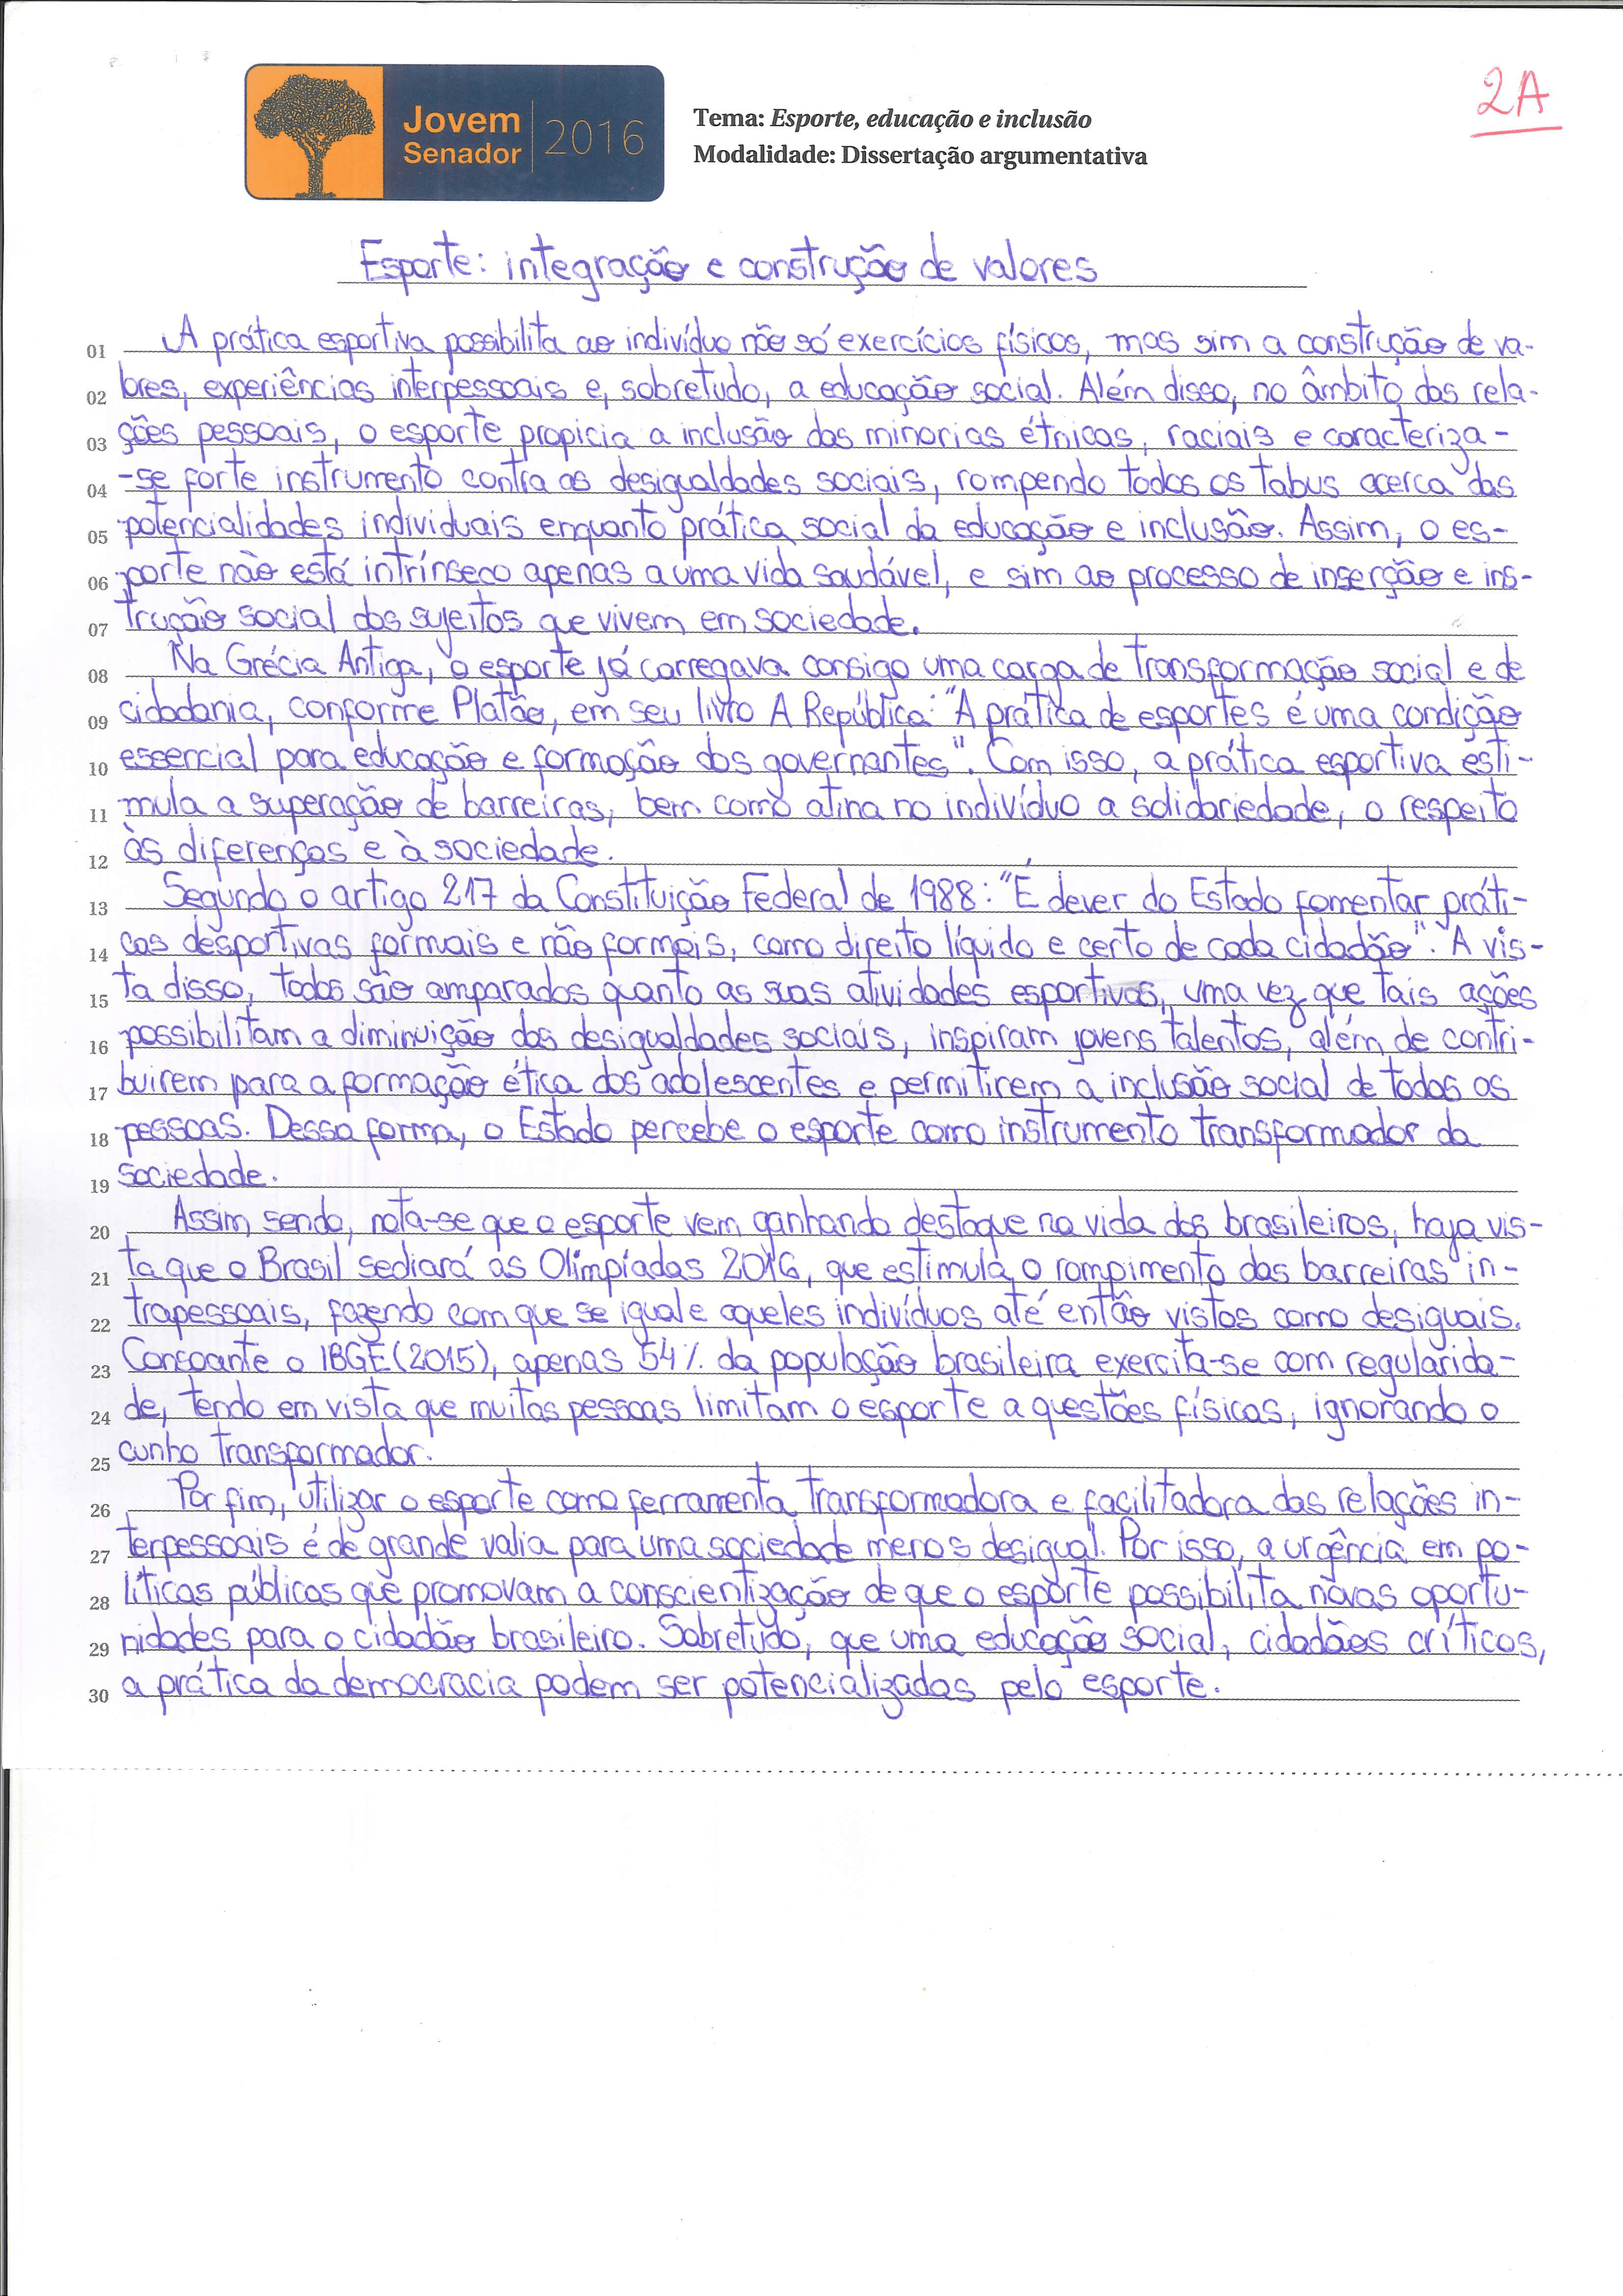 2A
Jovem
Senador
2016
Tema: Esporte, educação e inclusão
Modalidade: Dissertação argumentativa
Esporte: integração e construção de valores
01 A prática esportiva possibilita ao indivíduo não só exercícios físicos, mas sim a construção de va-
02 lores, experiências interpessoais e, sobretudo, a educação social. Além disso, no âmbito das rela-
03 ções pessoais, o esporte propicia a inclusão das minorias étnicas, raciais e caracteriza-
04 -se forte instrumento contra as desigualdades sociais, rompendo todos os tabus acerca das
05 potencialidades individuais enquanto prática social da educação e inclusão. Assim, o es-
06 porte não está intrínseco apenas a uma vida saudável, e sim ao processo de inserção e ins-
07 trução social dos sujeitos que vivem em sociedade.
08 Na Grécia Antiga, o esporte já carregava consigo uma carga de transformação social e de
09 cidadania, conforme Platão, em seu livro A República: "A prática de esportes é uma condição
10 essencial para educação e formação dos governantes". Com isso, a prática esportiva esti-
11 mula a superação de barreiras, bem como atina no indivíduo a solidariedade, o respeito
12 às diferenças e à sociedade.
13 Segundo o artigo 217 da Constituição Federal de 1988: "É dever do Estado fomentar práti-
14 cas desportivas formais e não formais, como direito líquido e certo de cada cidadão". A vis-
15 ta disso, todos são amparados quanto as suas atividades esportivas, uma vez que tais ações
16 possibilitam a diminuição das desigualdades sociais, inspiram jovens talentos, além de contri-
17 buirem para a formação ética dos adolescentes e permitirem a inclusão social de todas as
18 pessoas. Dessa forma, o Estado percebe o esporte como instrumento transformador da
19 sociedade.
20 Assim sendo, nota-se que o esporte vem ganhando destaque na vida dos brasileiros, haja vis-
21 ta que o Brasil sediará as Olimpíadas 2016, que estimula o rompimento das barreiras in-
22 trapessoais, fazendo com que se iguale aqueles indivíduos até então vistos como desiguais.
23 Consoante o IBGE (2015), apenas 54% da população brasileira exercita-se com regularida-
24 de, tendo em vista que muitas pessoas limitam o esporte a questões físicas, ignorando o
25 cunho transformador.
26 Por fim, utilizar o esporte como ferramenta transformadora e facilitadora das relações in-
27 terpessoais é de grande valia para uma sociedade menos desigual. Por isso, a urgência em po-
28 líticas públicas que promovam a conscientização de que o esporte possibilita novas oportu-
29 nidades para o cidadão brasileiro. Sobretudo, que uma educação social, cidadãos críticos,
30 a prática da democracia podem ser potencializadas pelo esporte.